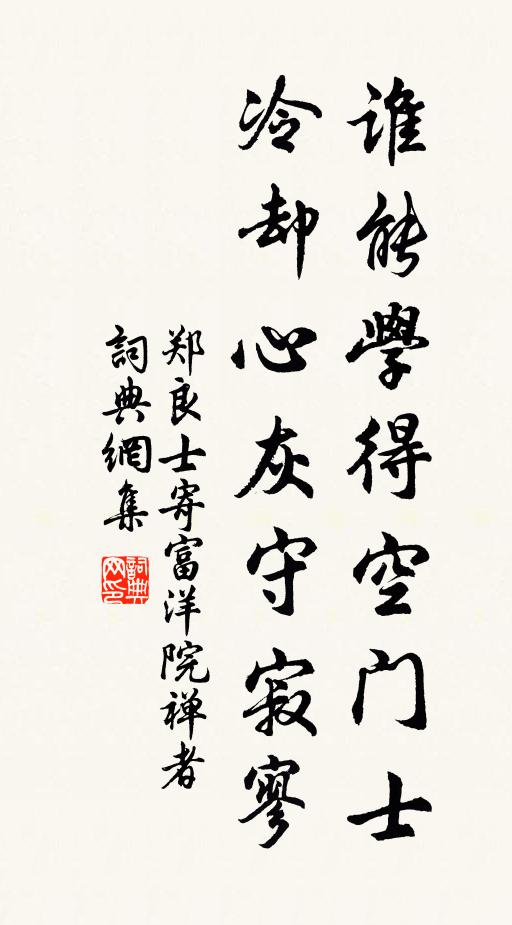 谁能學得空门士
冷却心灰守寂寥
郑良士寄富洋院禅者
詞典網集
詞典
网印